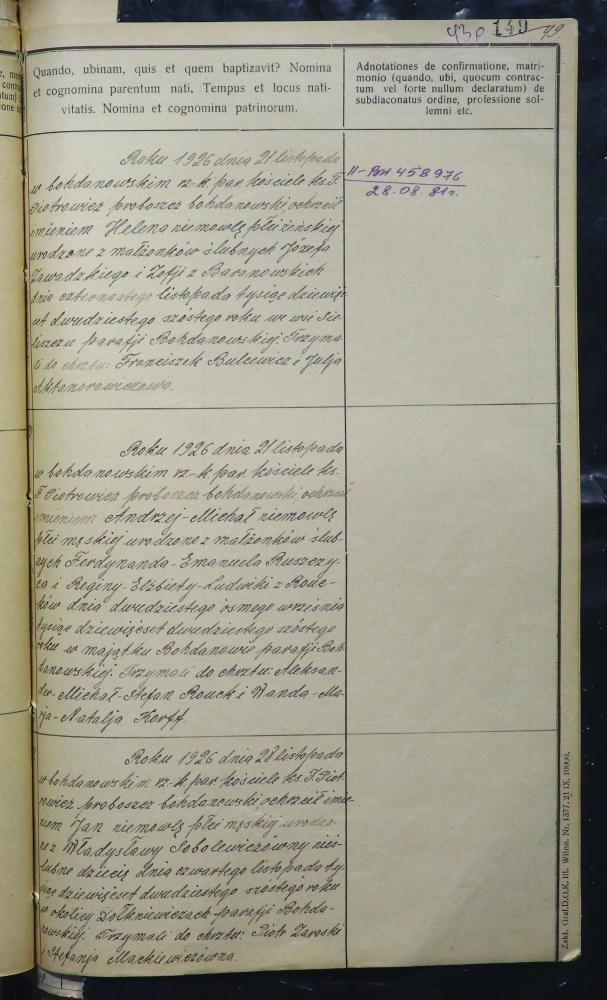 430 149 79
Quando, ubinam, quis et quem baptizavit? Nomina
et cognomina parentum nati. Tempus et locus nati-
vitatis. Nomina et cognomina patrinorum.
Adnotationes de confirmatione, matri-
monio (quando, ubi, quocum contrac-
tum vel forte nullum declaratum) de
subdiaconatus ordine, professione sol-
lemni etc.
Roku 1926 dnia 21 listopada
w bohdanowskim rz.-k. par. kościele ks. F.
Piotrowicz proboszcz bohdanowski, ochrzcił
imieniem Helena niemowlę płci żeńskiej
urodzone z małżonków ślubnych Józefa
Zawadzkiego i Zofji z Baranowskich
dnia czternastego listopada tysiąc dziewię-
set dwudziestego szóstego roku we wsi Sie-
liszczu parafji Bohdanowskiej. Trzyma-
li do chrztu: Franciszek Bulcewicz i Julja
Aktanorowiczowa.
II-ВН 458976
28.08.81г.
Roku 1926 dnia 21 listopada
w bohdanowskim rz.-k. par. kościele ks.
F. Piotrowicz proboszcz bohdanowski, ochrzcił
imieniem Andrzej-Michał niemowlę
płci męskiej urodzone z małżonków ślub-
nych Ferdynanda-Emanuela Ruszczy-
ca i Reginy-Elżbiety-Ludwiki z Rouc-
ków dnia dwudziestego ósmego września
tysiąc dziewięćset dwudziestego szóstego
roku w majątku Bohdanowie parafji Boh-
danowskiej. Trzymali do chrztu: Aleksan-
der-Michał-Stefan Rouck i Wanda-Ma-
rja-Natalja Korff.
Roku 1926 dnia 28 listopada
w bohdanowskim rz.-k. par. kościele ks. F. Piot-
rowicz proboszcz bohdanowski, ochrzcił imie-
niem Jan niemowlę płci męskiej urodzo-
ne z Władysławy Sobolewiczówny nieś-
lubne dziecię dnia czwartego listopada ty-
siąc dziewięćset dwudziestego szóstego roku
w okolicy Dołhniewiczach parafji Bohda-
nowskiej. Trzymali do chrztu: Piotr Zaroski
i Stefanja Mackiewiczówna.
Zakł. Graf.D.O.K. III. Wilno. Nr. 1377. 21 IX. 10000.